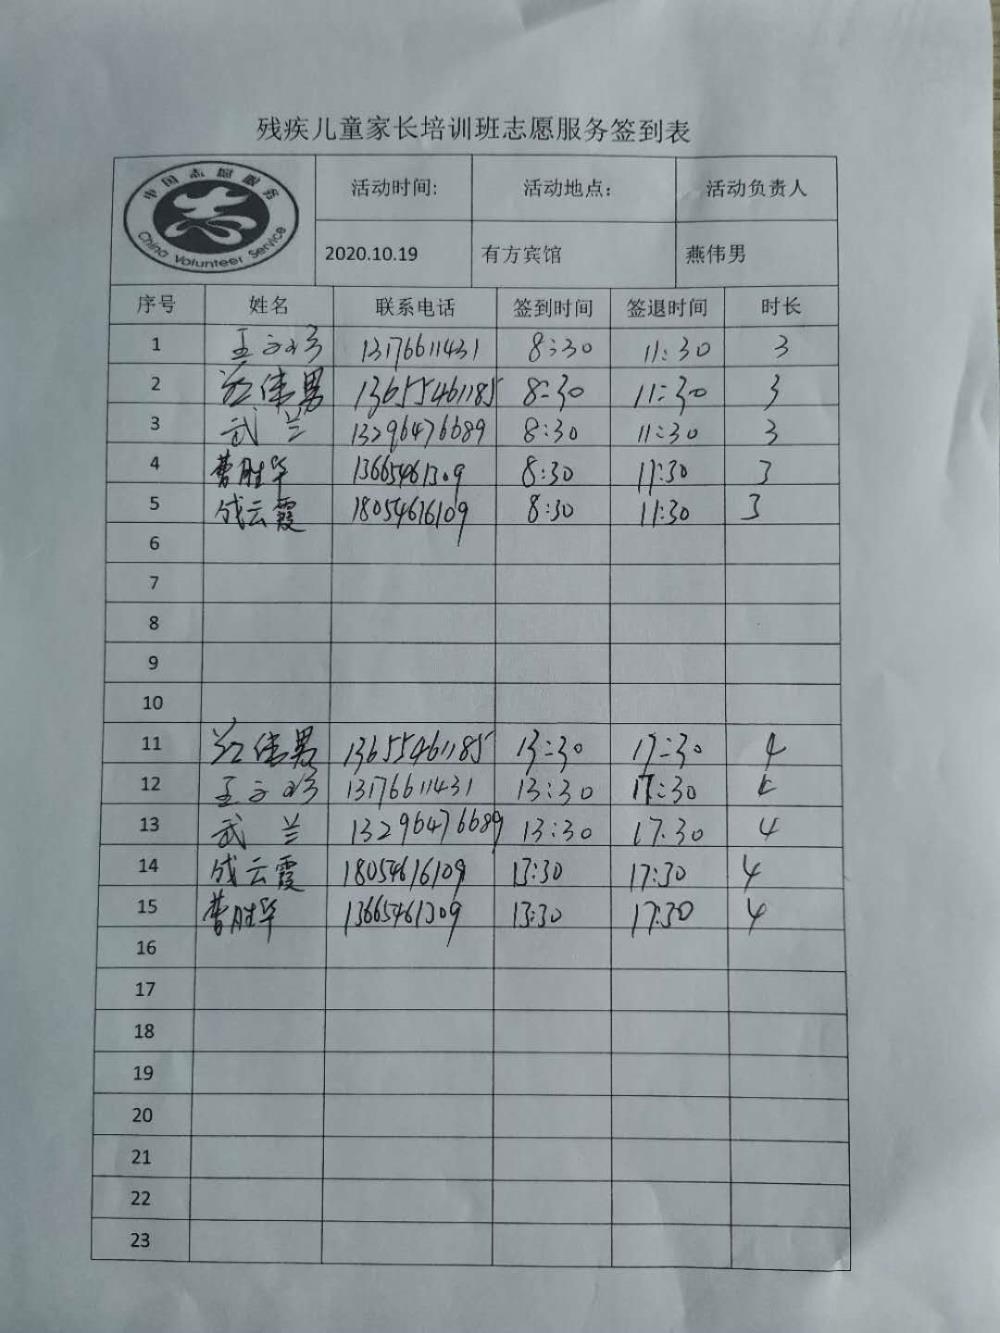 残疾儿童家长培训班志愿服务签到表
中国志愿服务
China Volunteer Service
活动时间: 活动地点: 活动负责人
2020.10.19 有方宾馆 燕伟男
序号 姓名 联系电话 签到时间 签退时间 时长
1 13176611431 8:30 11:30 3
2 伟男 13655461185 8:30 11:30 3
3 武兰 13296476689 8:30 11:30 3
4 曹胜华 13665461309 8:30 11:30 3
5 成云霞 18054616109 8:30 11:30 3
6
7
8
9
10
11 伟男 13655461185 13:30 17:30 4
12 13176611431 13:30 17:30 4
13 武兰 13296476689 13:30 17:30 4
14 成云霞 18054616109 13:30 17:30 4
15 曹胜华 13665461309 13:30 17:30 4
16
17
18
19
20
21
22
23